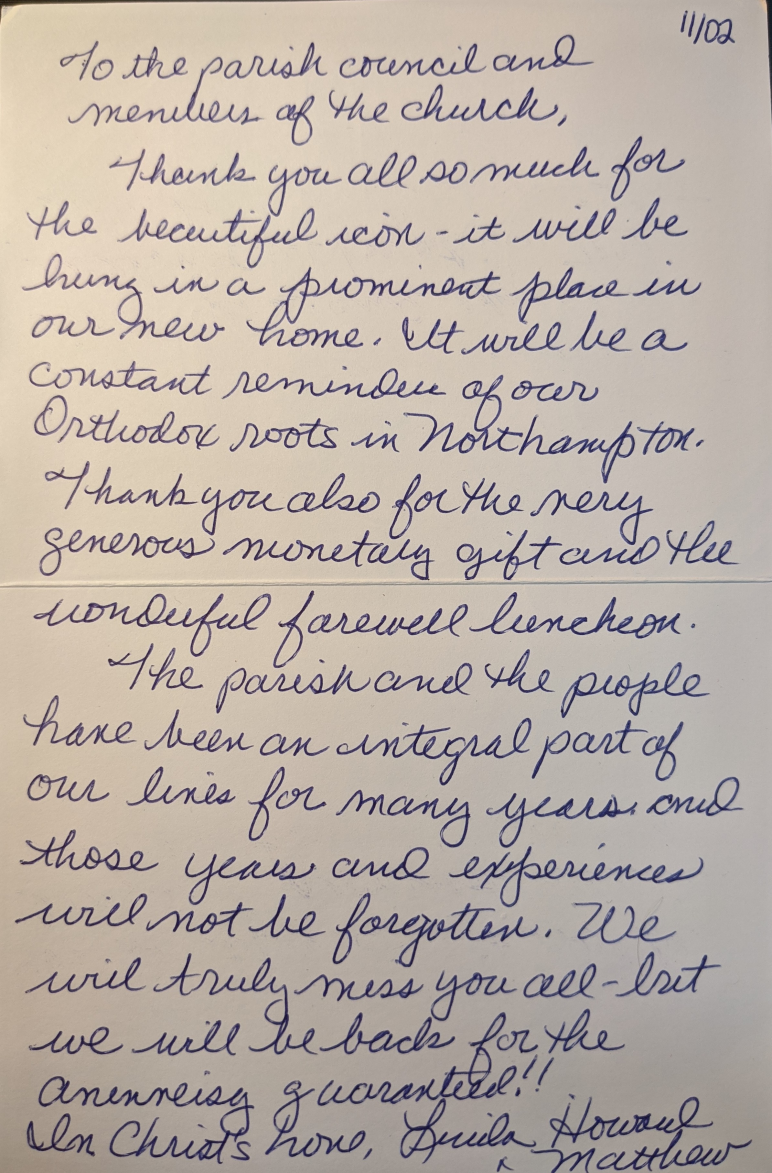 11/02
To the parish council and
members of the church,
Thank you all so much for
the beautiful icon - it will be
hung in a prominent place in
our new home. It will be a
constant reminder of our
Orthodox roots in Northampton.
Thank you also for the very
generous monetary gift and the
wonderful farewell luncheon.
The parish and the people
have been an integral part of
our lives for many years and
those years and experiences
will not be forgotten. We
will truly miss you all - but
we will be back for the
guaranteed!!
In Christ's love, Howard
Matthew